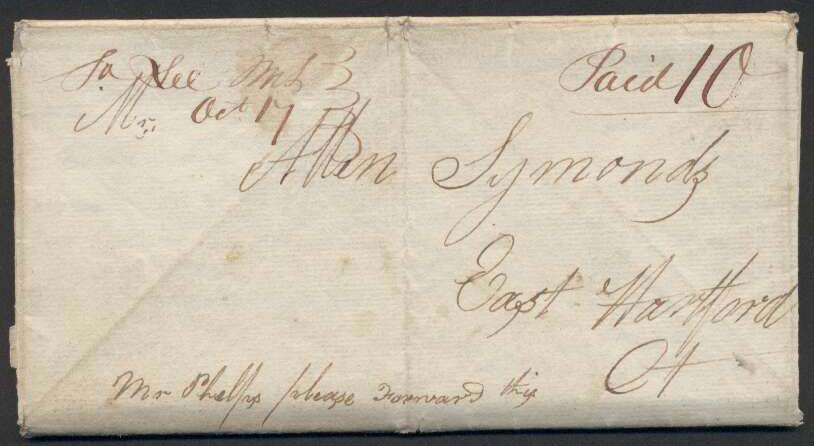 So Lee Ms Paid 10
Mr. Oct 17
Allen Symonds
East Hartford
Ct
Mr Phelps please Forward this